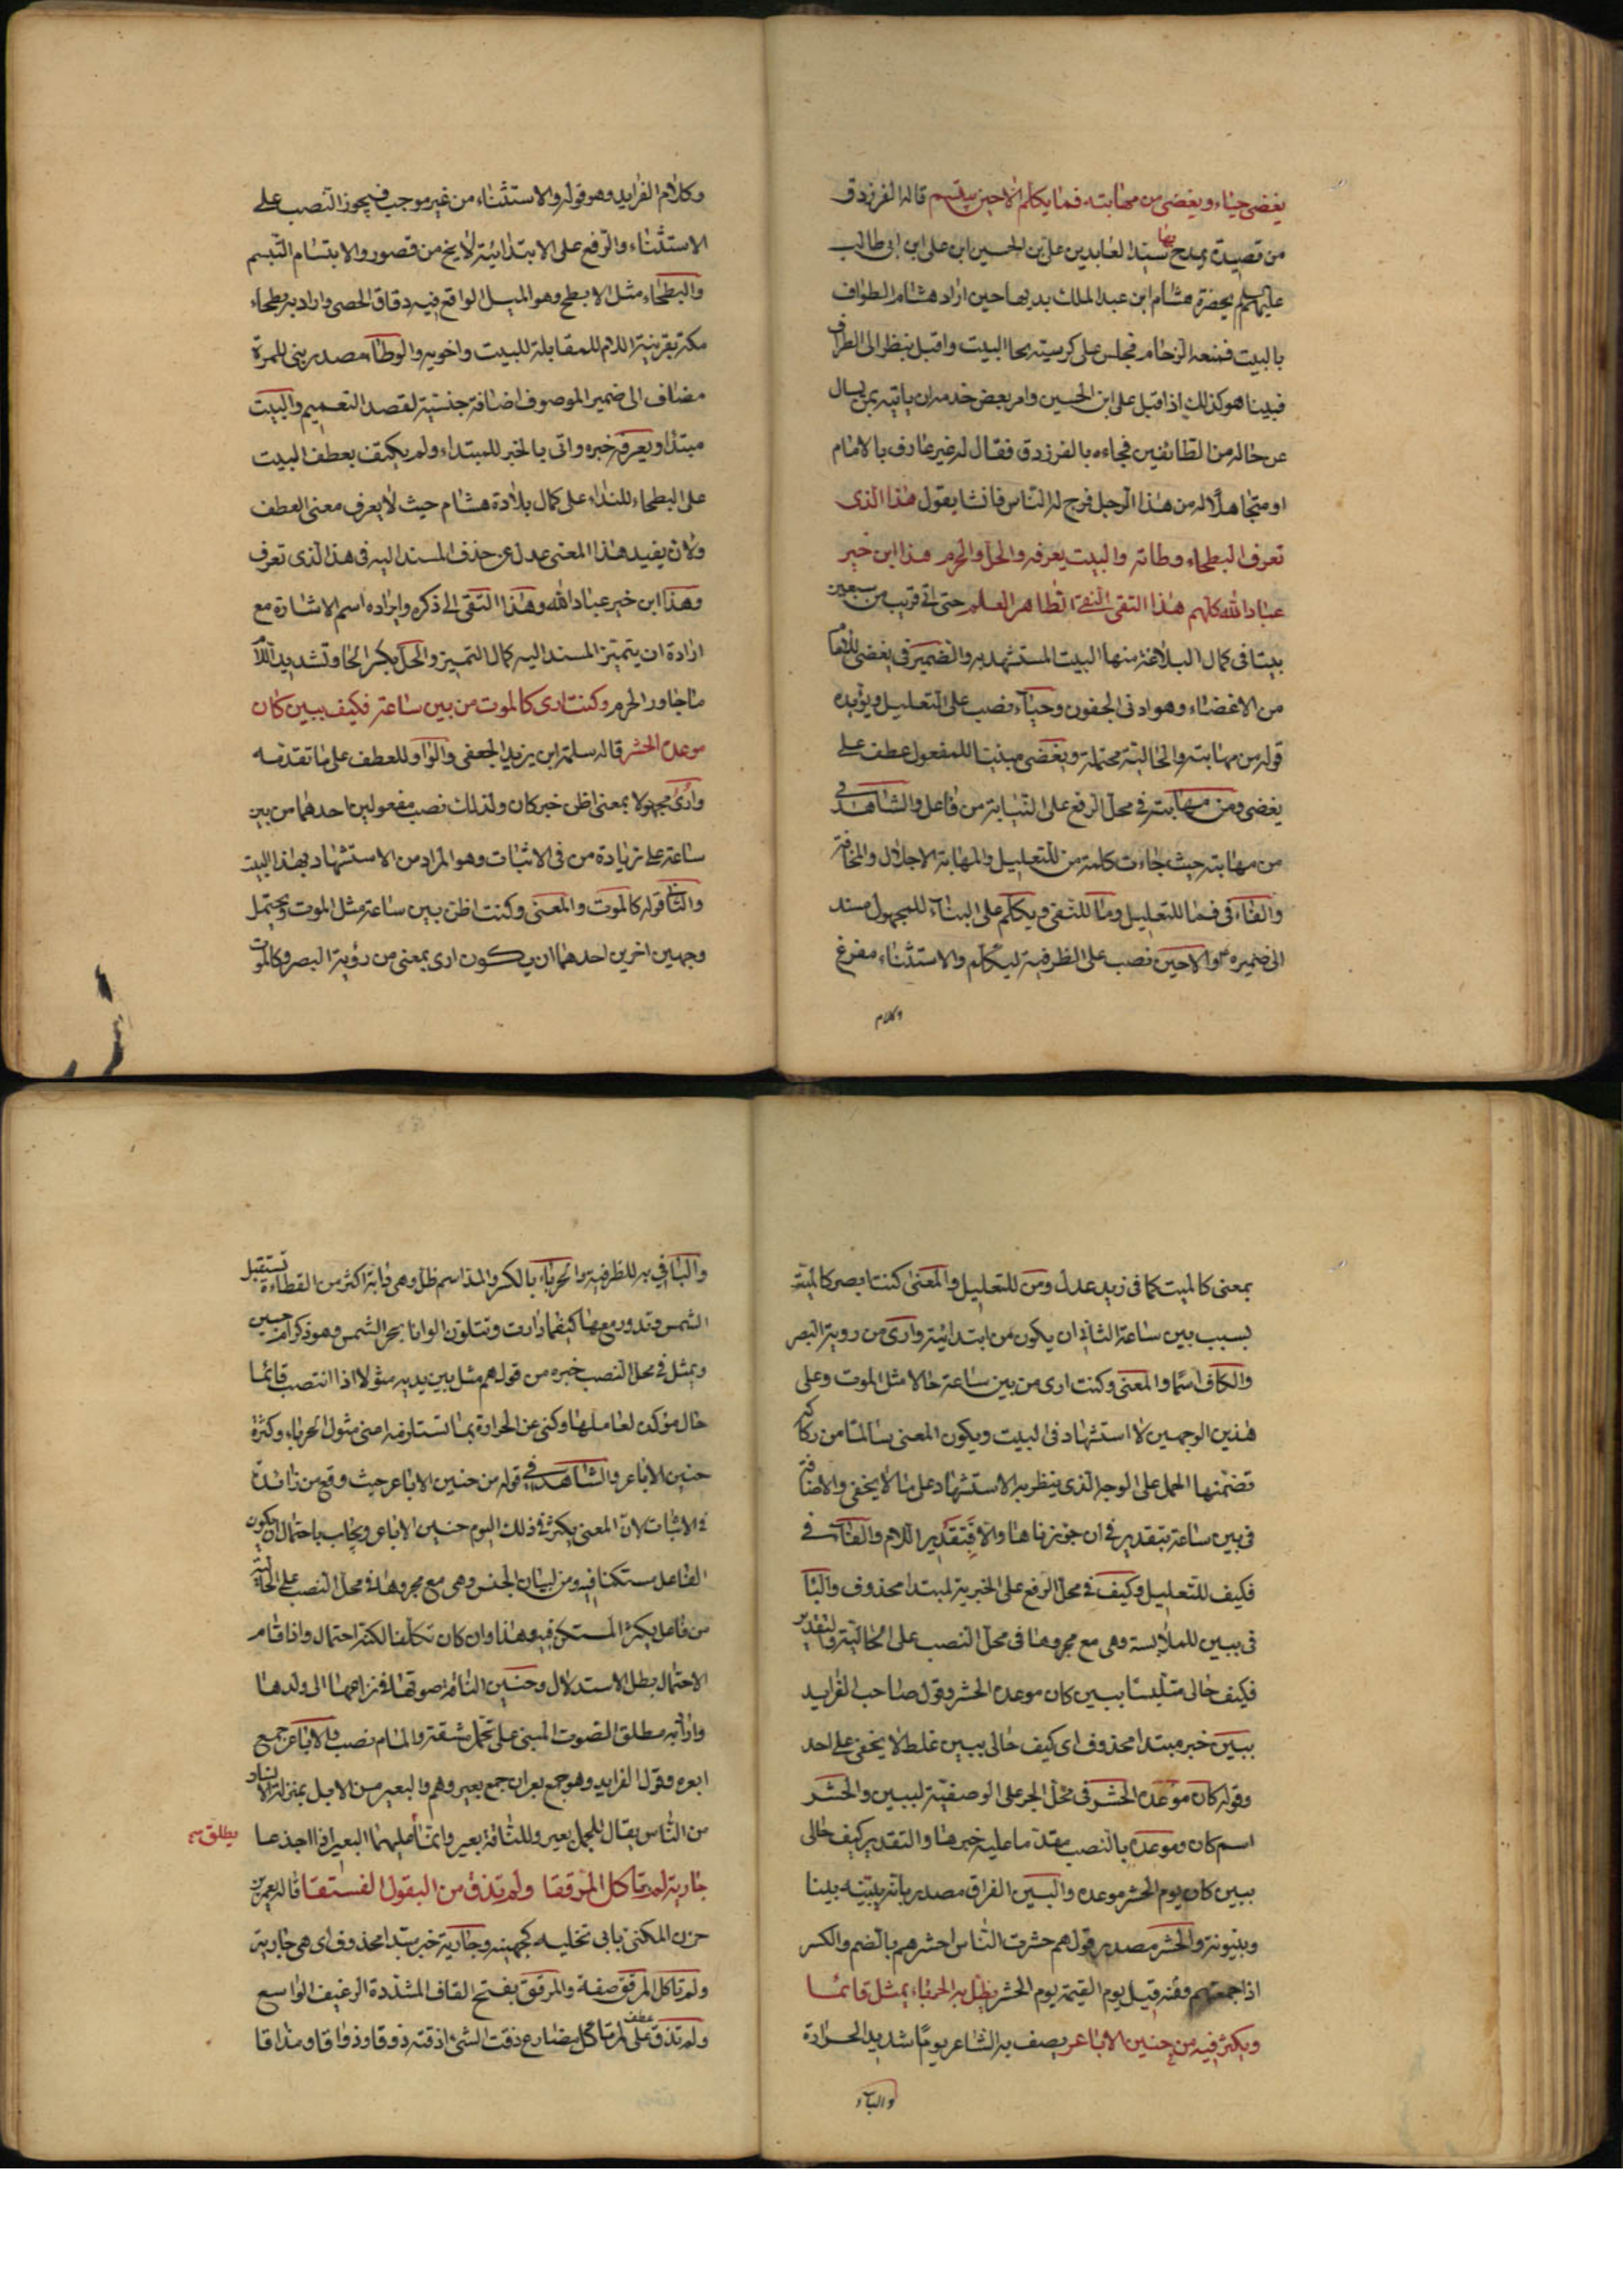 يغضى حياء ويغضى من مهابته فما يكلم الا حين يبتسم قاله الفرزدق
من قصيدة يمدح بها سيد العابدين على بن الحسين ابن على ابن ابى طالب
عليهم السلم بحضرة هشام ابن عبد الملك بديها حين اراد هشام الطواف
بالبيت فمنعه الزحام فجلس على كرسيته بحا البيت واقبل ينظر الى الطراف
فبينا هو كذلك اذا قبل على ابن الحسين وامر بعض خدمه ان ياتيه بمن يسال
عن حاله من الطائفين فجاءه بالفرزدق فقال له غير عارف بالامام
او متجاهلا له من هذا الرجل فرج له الناس فانشا يقول هذا الذى
تعرف البطحاء وطاته والبيت يعرفه والحل والحرم هذا ابن خير
عباد الله كلهم هذا التقى النقى الطاهر العلم حتى اتى قريب من سبعين
بيتا فى كمال البلاغة منها البيت المستشهد به والضمير فى يغضى للامام
من الاغضاء وهو ادنى الجفون وحياء نصب على التعليل ويؤيده
قوله من مهابته والحالية محتملة ويغضى مبنيا للمفعول عطف على
يغضى ومن مهابته فى محل الرفع على النيابة من فاعل والشاهد فى
من مهابته حيث جاءت كلمة من للتعليل والمهابة الاجلال والمخافة
والفاء فى فما للتعليل وما للنفى ويكلم على البناء للمجهول مسند
الى ضميره والا حين نصب على الظرفية ليكلم والاستثناء مفرغ
وكلام
وكلام الفرايد وهو قوله والاستثناء من غير موجب فيجوز النصب على
الاستثناء والرفع على الابتدائية لا يخ من قصور والابتسام التبسم
والبطحاء مثل الابطح وهو المسيل الواقع فيه دقاق الحصى واراد به بطحاء
مكة بقرينة الام للمقابلة للبيت واخويه والوطاء مصدر بنى للمرة
مضاف الى ضمير الموصوف اضافة جنسية لقصد التعميم والبيت
مبتدا ويعرفه خبره واتى بالخبر للمبتداء ولم يكتف بعطف البيت
على البطحاء للنداء على كمال بلادة هشام حيث لا يعرف معنى العطف
ولان يفيد هذا المعنى عدل عن حذف المسند اليه فى هذ الذى تعرف
وهذا ابن خير عباد الله وهذا التقى الى ذكره وايراده اسم الاشارة مع
ارادة ان يتميز المسند اليه كمال التميز والحل بكسر الحا وتشديد اللام
ما جاور الحرم وكنت ارى كالموت من بين ساعة فكيف ببين كان
موعده الحشر قاله سلمة ابن يزيد الجعفى والواو للعطف على ما تقدمه
وارى مجهولا بمعنى اظن خبر كان ولذلك نصب مفعولين احدهما من بين
ساعة على زيادة من فى الاثبات وهو المراد من الاستشهاد بهذا البيت
والثانى قوله كالموت والمعنى وكنت اظن بين ساعة مثل الموت ويحتمل
وجهين اخرين احدهما ان يكون ارى بمعنى من رؤية البصر وكالموت
بمعنى كالميت كما فى زيد عدل ومن للتعليل والمعنى كنت ابصر كالميت
بسبب بين ساعة الثانى ان يكون من ابتدائية وارى من روية البصر
والكاف اسما والمعنى وكنت ارى من بين ساعة حالا مثل الموت وعلى
هذين الوجهين لا استشهاد فى البيت ويكون المعنى سالما من ركاكة
تضمنها الحمل على الوجه الذى ينظر به الاستشهاد على ما لا يخفى والاضافة
فى بين ساعة بتقدير فى ان جوزناها والا فبتقدير اللام والفاء فى
فكيف للتعليل وكيف فى محل الرفع على الخبرية لمبتدا محذوف والبا
فى ببين للملابسة وهى مع مجروها فى محل النصب على الحالية والتقدير
فكيف حالى متلبسا ببين كان موعده الحشر وقول صاحب الفرايد
ببين خبر مبتدا محذوف اى كيف حالى ببين غلط لا يخفى على احد
وقوله كان موعده الحشر فى محل الجر على الوصفية لببين والحشر
اسم كان وموعده بالنصب مقدما عليه خبرها والتقدير كيف حالى
ببين كان يوم الحشر موعده والبين الفراق مصدر بانه يبينه بينا
وبينونة والحشر مصدر قولهم حشرت الناس احشرهم بالضم والكسر
اذا جمعتهم ومنه قيل يوم القيمة يوم الحشر يظل به الحرباء يمثل قائما
ويكثر فيه من حنين الاباعر يصف به الشاعر يوما شديد الحرارة
والباء
والبا فى به للظرفية والحرباء بالكسر والمد اسم ظل وهى دابة اكثر من القطاءة تستقبل
الشمس وتدور معها كيفما دارت وتتلون الوانا بحر الشمس وهو ذكر ام حبين
ويمثل فى محل النصب خبره من قولهم مثل بين يديه مثولا اذا انتصب قائما
حال مؤكدة لعاملها وكنى عن الحرارة بما تستلزمه اعنى مثول الحرباء وكثرة
حنين الاباعر والشاهد فى قوله من حنين الاباعر حيث وقع من زائدة
فى الاثبات لان المعنى يكثر فى ذلك اليوم حنين الاباعر ويجاب باحتمال ان يكون
الفاعل مستكنا فيه ومن لبيان الجنس وهى مع مجروها فى محل النصب على الحالية
من فاعل يكثر المستكن فيه وهذا وان كان تكلفا لكنه احتمال واذا قام
الاحتمال بطل الاستدلال وحنين الناقة صوتها فى نزاعها الى ولدها
واراد به مطلق الصوت المبنى على تحمل مشقة والمام نصب والاباعر جمع
ابعره وقول الفرايد وهو جمع بعران جمع بعير وهم والبعير من الابل بمنزلة الانسان
من الناس يقال للجمل بعير وللناقة بعير وانما يطلق عليهما البعير اذا اجذعا
جارية لم تاكل المرققا ولم تذق من البقول الفستقا قاله يعمر بن
حزن المكنى بابى نخليه كجهينه وجارية خبر مبتدا محذوف اى هى جارية
ولم تاكل المرقق صفة والمرقق بفتح القاف المشددة الرغيف الواسع
ولم تذق عطف على لم تاكل مضارع ذقت الشئ اذقته ذوقا وذواقا ومذاقا